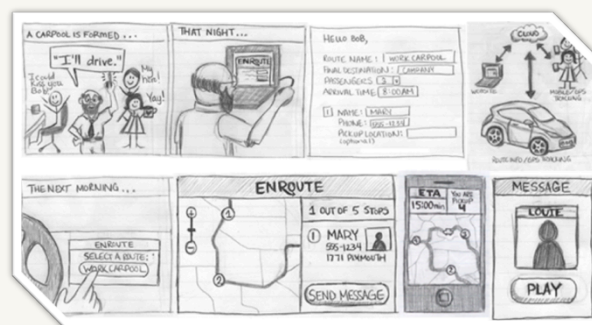 A CARPOOL IS FORMED...
"I'll drive."
I could
kiss you
Bob!
My
hero!
Yay!
THAT NIGHT...
ENROUTE
HELLO BOB,
ROUTE NAME: WORK CARPOOL
FINAL DESTINATION: COMPANY
PASSENGERS: 3
ARRIVAL TIME: 8:00AM
1 NAME: MARY
PHONE: 555-1234
PICKUP LOCATION:
(optional)
CLOUD
WEBSITE
MOBILE/GPS
TRACKING
ROUTE INFO/GPS TRACKING
THE NEXT MORNING...
ENROUTE
SELECT A ROUTE:
WORK CARPOOL
ENROUTE
1
2
1 OUT OF 5 STOPS
1 MARY
555-1234
1771 PLYMOUTH
SEND MESSAGE
ETA
15:00min
YOU ARE
PICKUP
4
MESSAGE
LOUIE
PLAY